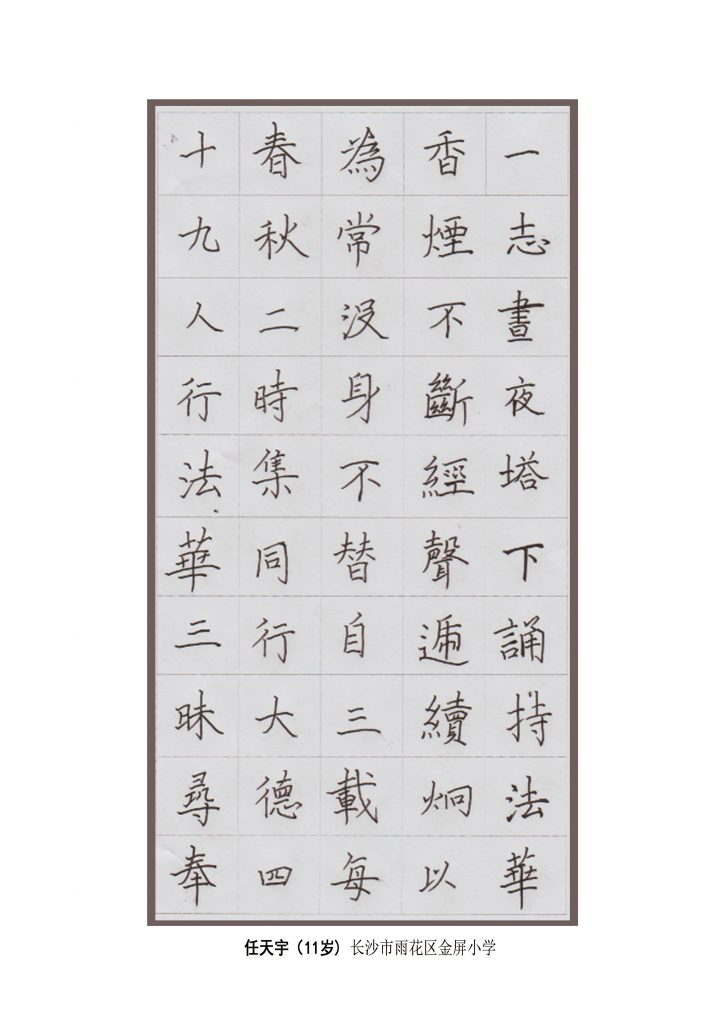 一志晝夜塔下誦持法華
香煙不斷經聲遞續炯以
為常没身不替自三載每
春秋二時集同行大德四
十九人行法華三昧尋奉
任天宇（11岁）长沙市雨花区金屏小学